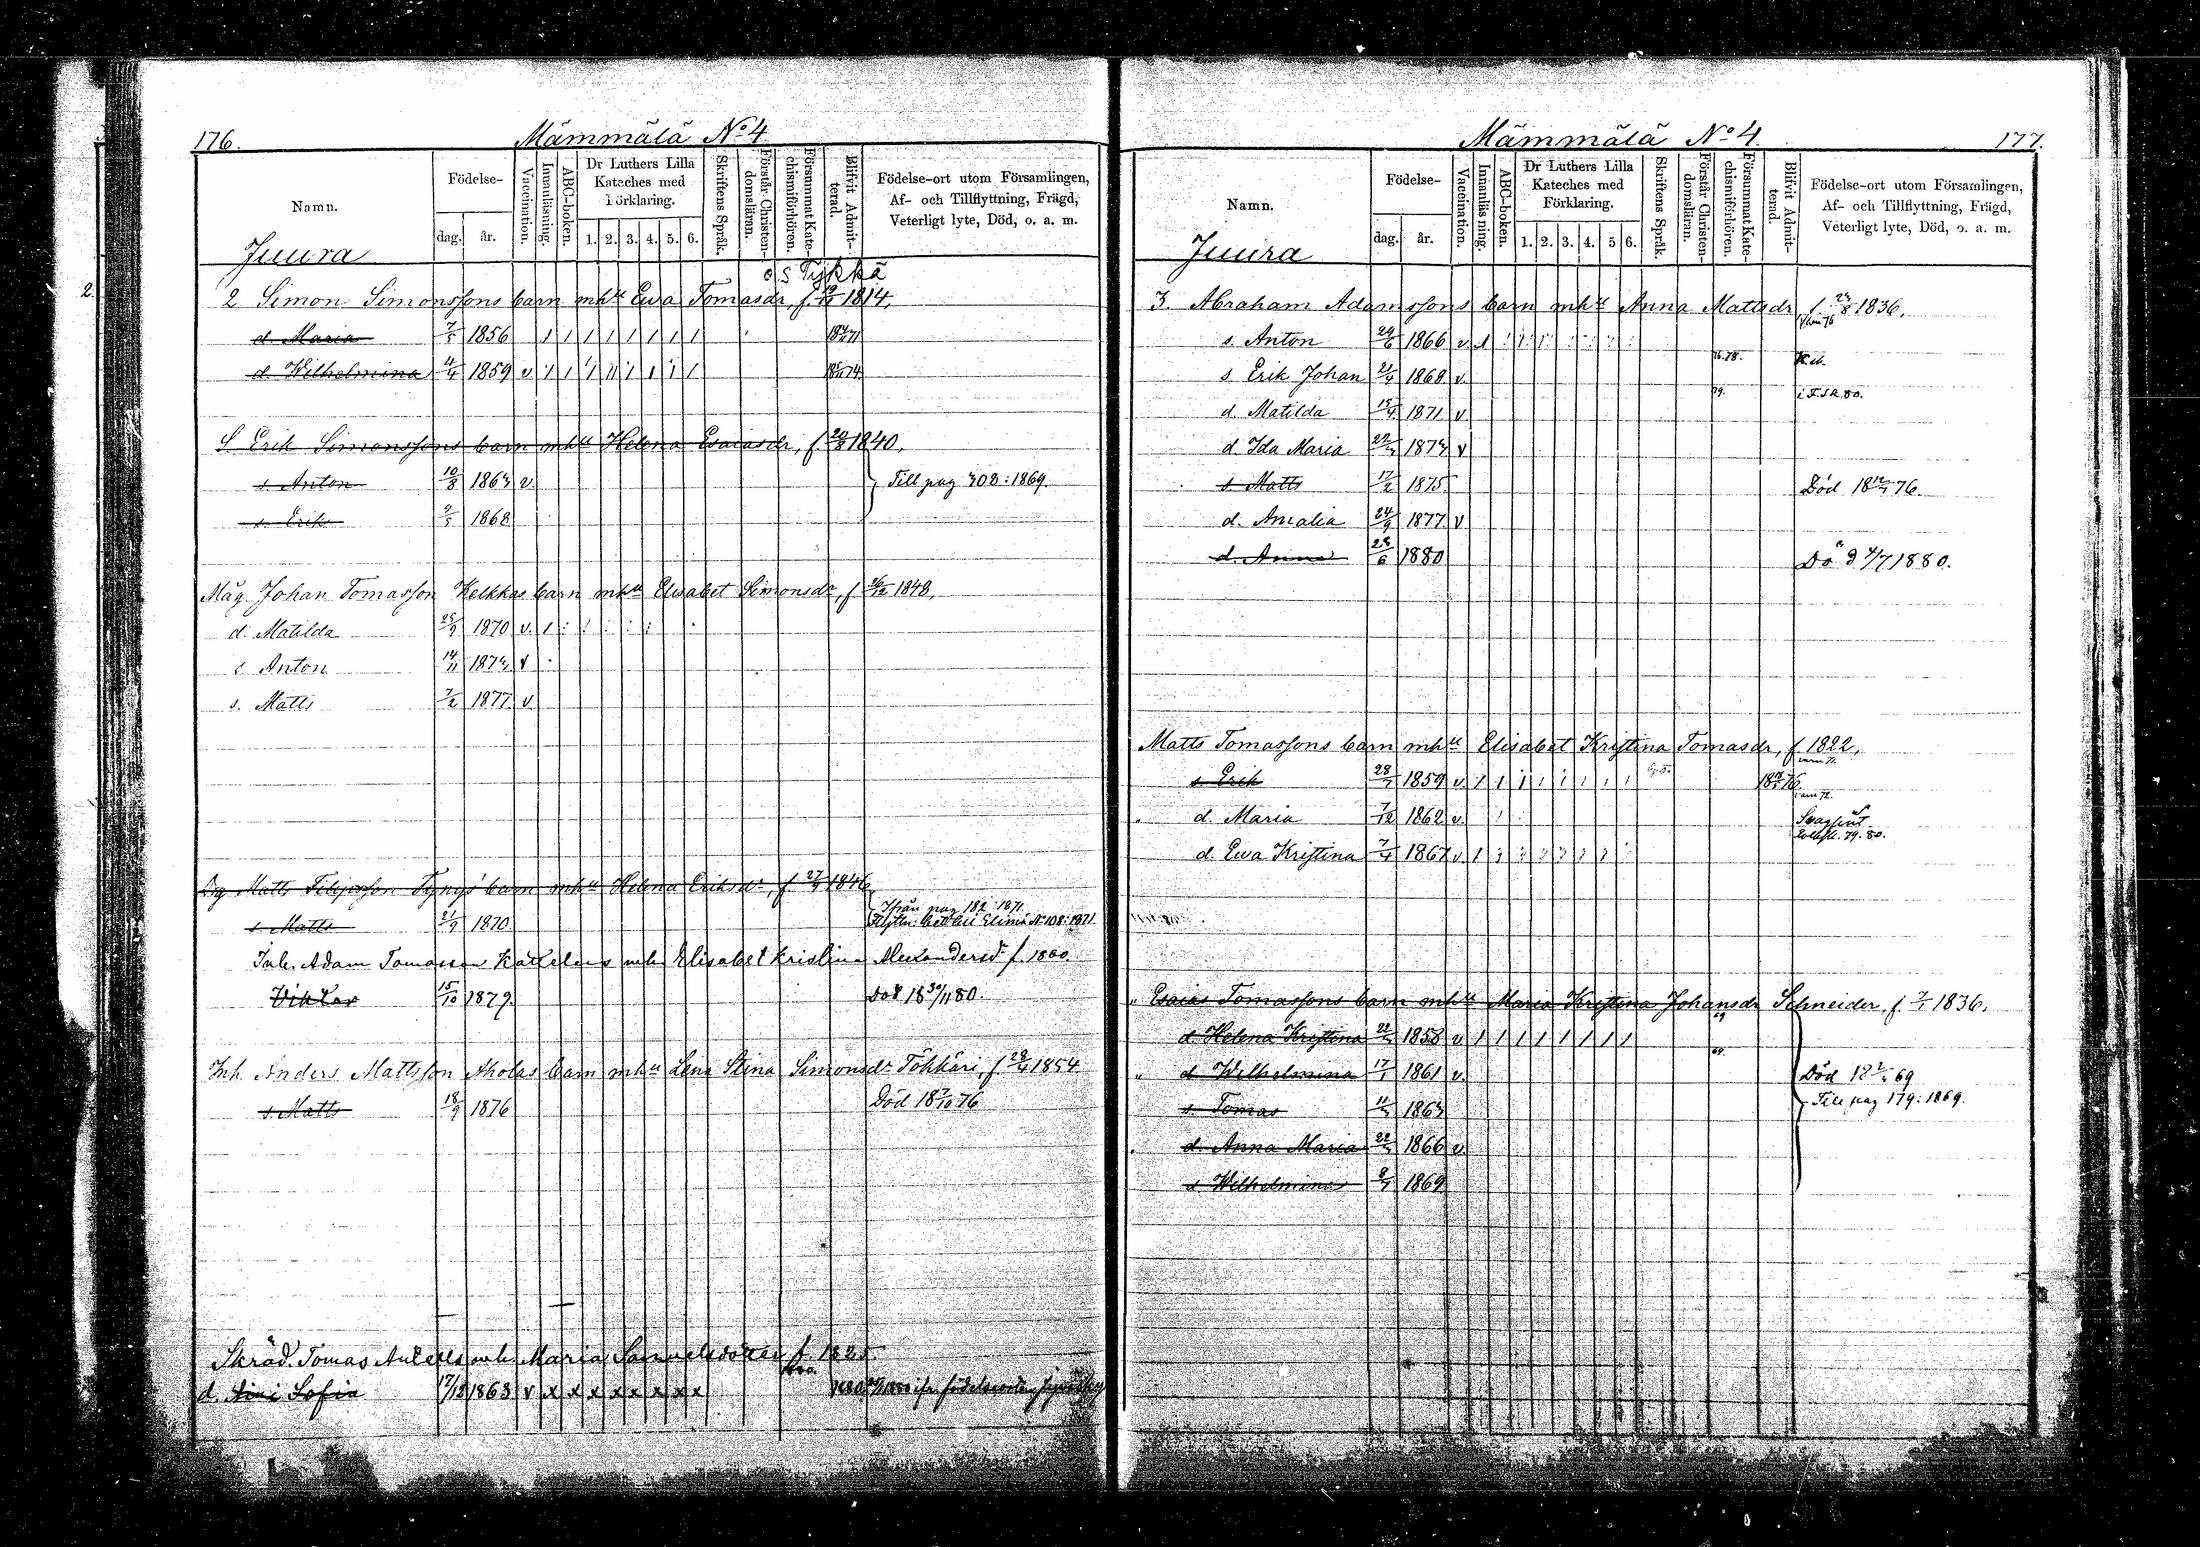 176.
Mämmälä No 4
Namn.
Födelse-
dag.
år.
Vaccination.
Innanläsning.
ABC-boken.
Dr Luthers Lilla
Kateches med
Förklaring.
1. 2. 3. 4. 5. 6.
Skriftens Språk.
Förstår Christen-
domsläran.
Försummat Kate-
chismiförhören.
Blifvit Admit-
terad.
Födelse-ort utom Församlingen,
Af- och Tillflyttning, Frägd,
Veterligt lyte, Död, o. a. m.
Juura
Tykkä
2 Simon Simonssons barn mhu Ewa Tomasdr, f. 1814,
d. Maria 7/5 1856
d. Wilhelmina 4/4 1859 v
S Erik Simonssons barn mhu Helena Esaiasdr, f. 1840,
s. Anton 10/8 v. Till pag 302: 1869.
s. Erik 9/5 1868
Måg Johan Tomasson Kelkkas barn mhu Elisabet Simonsdr, f 26/12 1848,
d. Matilda 25/9 1870 v.
s. Anton 14/11 1873 v
s. Matts 7/2 1877 v.
Matts Filipsson Tyngs barn mhu Helena Eriksdr, f. 27/9 1846,
Ifrån pag 182: 1871.
s Matts 21/9 1870 Elimä No 108: 1871
Inh. Adam Tomasson mh Elisabet Kristina Alexandersdr f. 1860.
Viktor 15/10 1879. Död 18 30/11 80.
Inh. Anders Mattsson Aholas barn mhu Lena Stina Simonsdr Töhkäri, f 28/4 1854
s. Matts 18/9 1876 Död 18 7/10 76
Skräd. Tomas mh Maria Samuelsdotter f. 1825.
d. Sofia 17/12 1863 v x x x x x x x x
177.
Mämmälä No 4.
Namn.
Födelse-
dag.
år.
Vaccination.
Innanläsning.
ABC-boken.
Dr Luthers Lilla
Kateches med
Förklaring.
1. 2. 3. 4. 5 6.
Skriftens Språk.
Förstår Christen-
domsläran.
Försummat Kate-
chismiförhören.
Blifvit Admit-
terad.
Födelse-ort utom Församlingen,
Af- och Tillflyttning, Frägd,
Veterligt lyte, Död, o. a. m.
Juura
3. Abraham Adamssons barn mhu Anna Mattsdr, f. 23/8 1836,
s. Anton 24/6 1866 v.
76.78.
s. Erik Johan 21/4 1868 v.
79.
d. Matilda 15/4 1871 v
d. Ida Maria 1873 v
s. Matts 17/2 1875. Död 18 76.
d. Amalia 24/9 1877 v
d. Anna 1880 Död 4/7 1880.
Matts Tomassons barn mhu Elisabet Kristina Tomasdr, f. 1822,
s. Erik 1859 v.
d. Maria 7/12 1862 v. Svagsint
79. 80.
d. Ewa Kristina 7/4 1867 v
Esaias Tomassons barn mhu Maria Kristina Johansdr Schneider, f. 7/1 1836,
d. Helena Kristina 1858 v
69.
d Wilhelmina 17/1 1861 v. Död 69
s. Tomas Till pag 179: 1869.
d. Anna Maria 1866 v
d Wilhelmina 8/7 1869